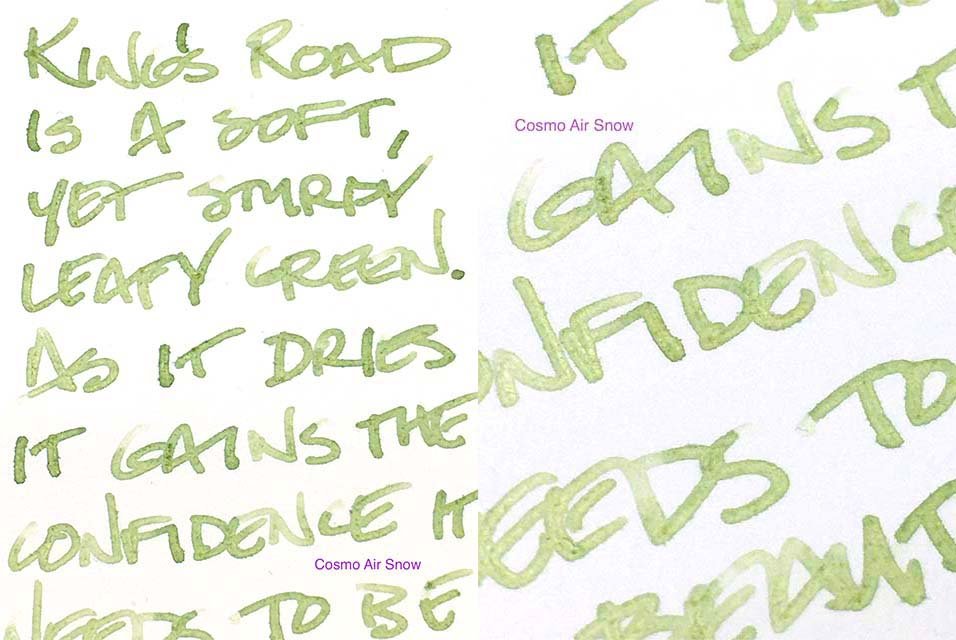 KING'S ROAD
IS A SOFT,
YET STURDY
LEAFY GREEN.
AS IT DRIES
IT GAINS THE
CONFIDENCE IT
NEEDS TO BE
Cosmo Air Snow
IT DRIE
Cosmo Air Snow
GAINS T
ONFIDENCE
EEDS TO
BEAUT